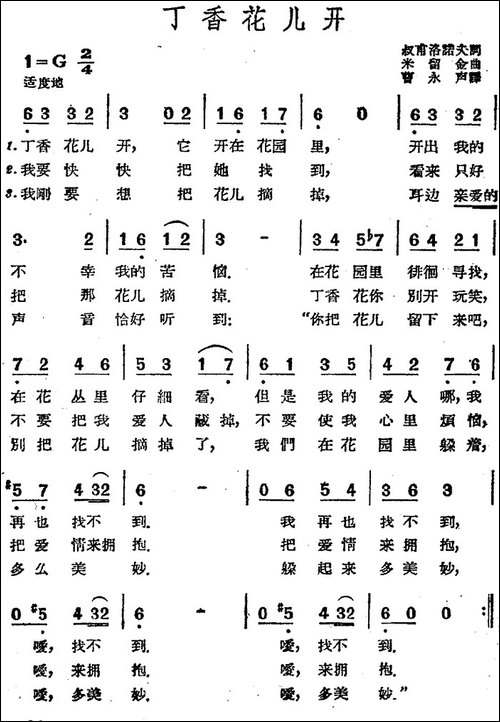 丁香花儿开
1=G 2/4
适度地
叔甫洛諾夫詞
米留金曲
曹永声譯
6 3 3 2 | 3 0 2 | 1 6 1 7 | 6 0 | 6 3 3 2 |
1. 丁香花儿开，它开在花园里，开出我的
2. 我要快快把她找到，看来只好
3. 我刚要想把花儿摘掉，耳边亲爱的
3. 2 | 1 6 1 2 | 3 - | 3 4 5 ♭7 | 6 4 2 1 |
不幸我的苦恼. 在花园里徘徊寻找，
把那花儿摘掉. 丁香花你别开玩笑，
声音恰好听到: “你把花儿留下来吧，
7 2 4 6 | 5 3 1 7 | 6 1 3 5 | 4 2 7 6 |
在花丛里仔細看，但是我的爱人哪，我
不要把我爱人藏掉，不要使我心里煩恼，
别把花儿摘掉了，我們在花园里躲着，
#5 7 4 32 | 6 - | 0 6 5 4 | 3 6 3 |
再也找不到. 我再也找不到，
把爱情来拥抱. 把爱情来拥抱，
多么美妙. 躲起来多美妙，
0 #5 4 32 | 6 - | 0 #5 4 32 | 6 0 0 :||
噯，找不到. 噯，找不到.
噯，来拥抱. 噯，来拥抱.
噯，多美妙. 噯，多美妙.”